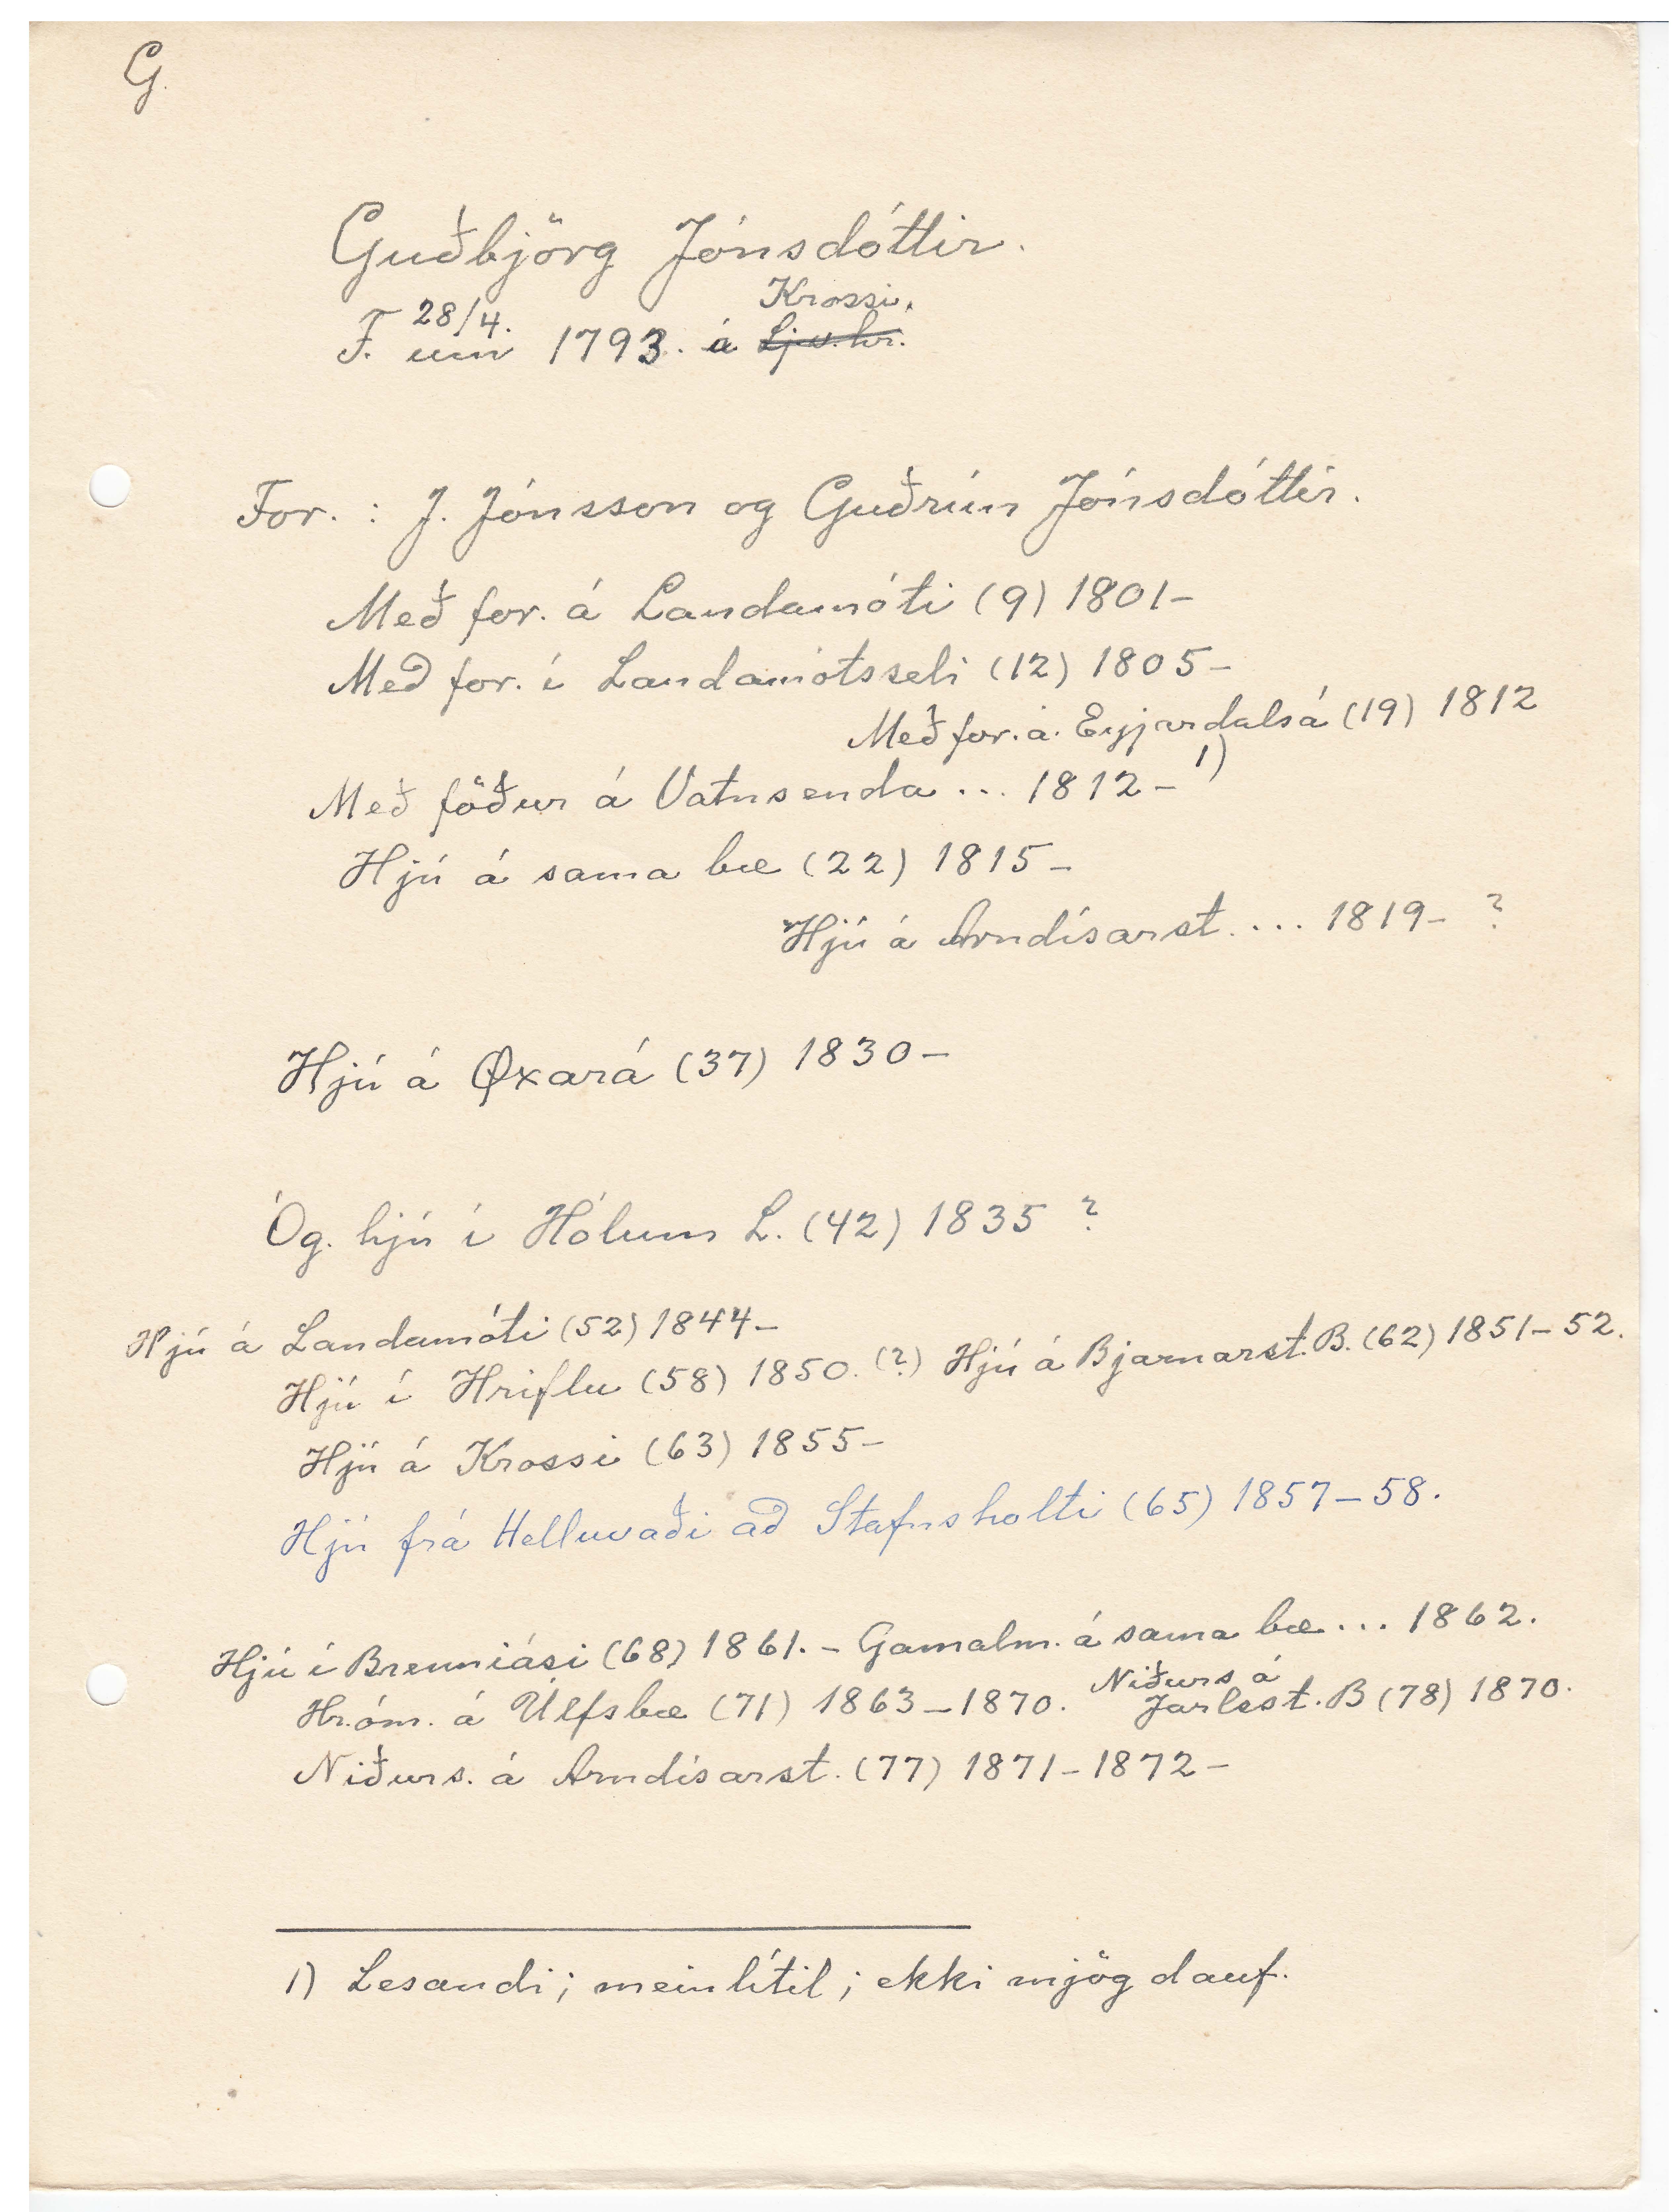 G.
Guðbjörg Jónsdóttir.
Krossi.
28/4.
F. um 1793. á Ljv.hr.
For. : J. Jónsson og Guðrún Jónsdóttir.
Með for. á Landamóti (9) 1801-
Með for. í Landamótsseli (12) 1805-
Með for. á Eyjardalsá (19) 1812
Með föður á Vatnsenda ... 1812- 1)
Hjú á sama bæ (22) 1815-
Hjú á Arndísarst. ... 1819- ?
Hjú á Øxará (37) 1830-
Óg. hjú í Hólum L. (42) 1835 ?
Hjú á Landamóti (52) 1844-
Hjú í Hriflu (58) 1850. (?) Hjú á Bjarnarst. B. (62) 1851-52.
Hjú á Krossi (63) 1855-
Hjú frá Helluvaði að Stafnsholti (65) 1857-58.
Hjú í Brenniási (68) 1861. - Gamalm. á sama bæ ... 1862.
Niðurs á
Hr.óm. á Úlfsbæ (71) 1863-1870. Jarlsst. B (78) 1870.
Niðurs. á Arndísarst. (77) 1871-1872-
1) Lesandi; meinlítil; ekki mjög dauf.